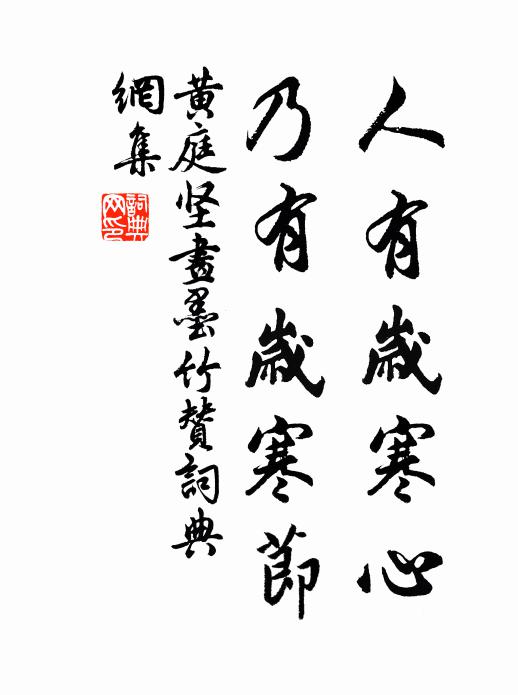 人有歲寒心
乃有歲寒節
黄庭坚畫墨竹贊詞典
網集
詞典
网印